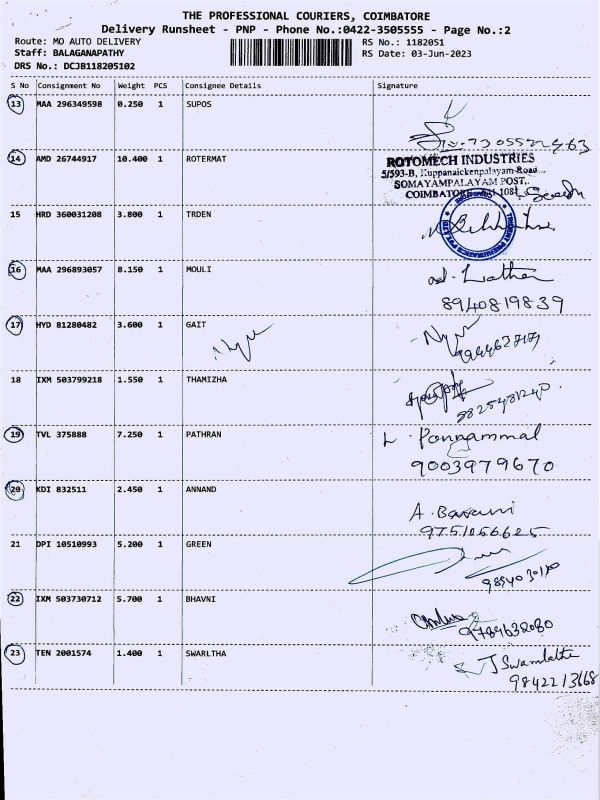 THE PROFESSIONAL COURIERS, COIMBATORE
Delivery Runsheet - PNP - Phone No.:0422-3505555 - Page No.:2
Route: MO AUTO DELIVERY RS No.: 1182051
Staff: BALAGANAPATHY RS Date: 03-Jun-2023
DRS No.: DCJB118205102
S No Consignment No Weight PCS Consignee Details Signature
13 MAA 296349598 0.250 1 SUPOS
14 AMD 26744917 10.400 1 ROTERMAT
ROTOMECH INDUSTRIES
5/593-B, Kuppanaickenpalayam Road
SOMAYAMPALAYAM POST,
COIMBATORE
15 HRD 360031208 3.800 1 TRDEN
16 MAA 296893057 8.150 1 MOULI
8940819839
17 HYD 81280482 3.600 1 GAIT
18 IXM 503799218 1.550 1 THAMIZHA
19 TVL 375888 7.250 1 PATHRAN
L. Ponnammal
9003979670
20 KDI 832511 2.450 1 ANNAND
A. Barani
9751056625
21 DPI 10510993 5.200 1 GREEN
22 IXM 503730712 5.700 1 BHAVNI
9789638080
23 TEN 2001574 1.400 1 SWARLTHA
J Swamlatha
9842213668